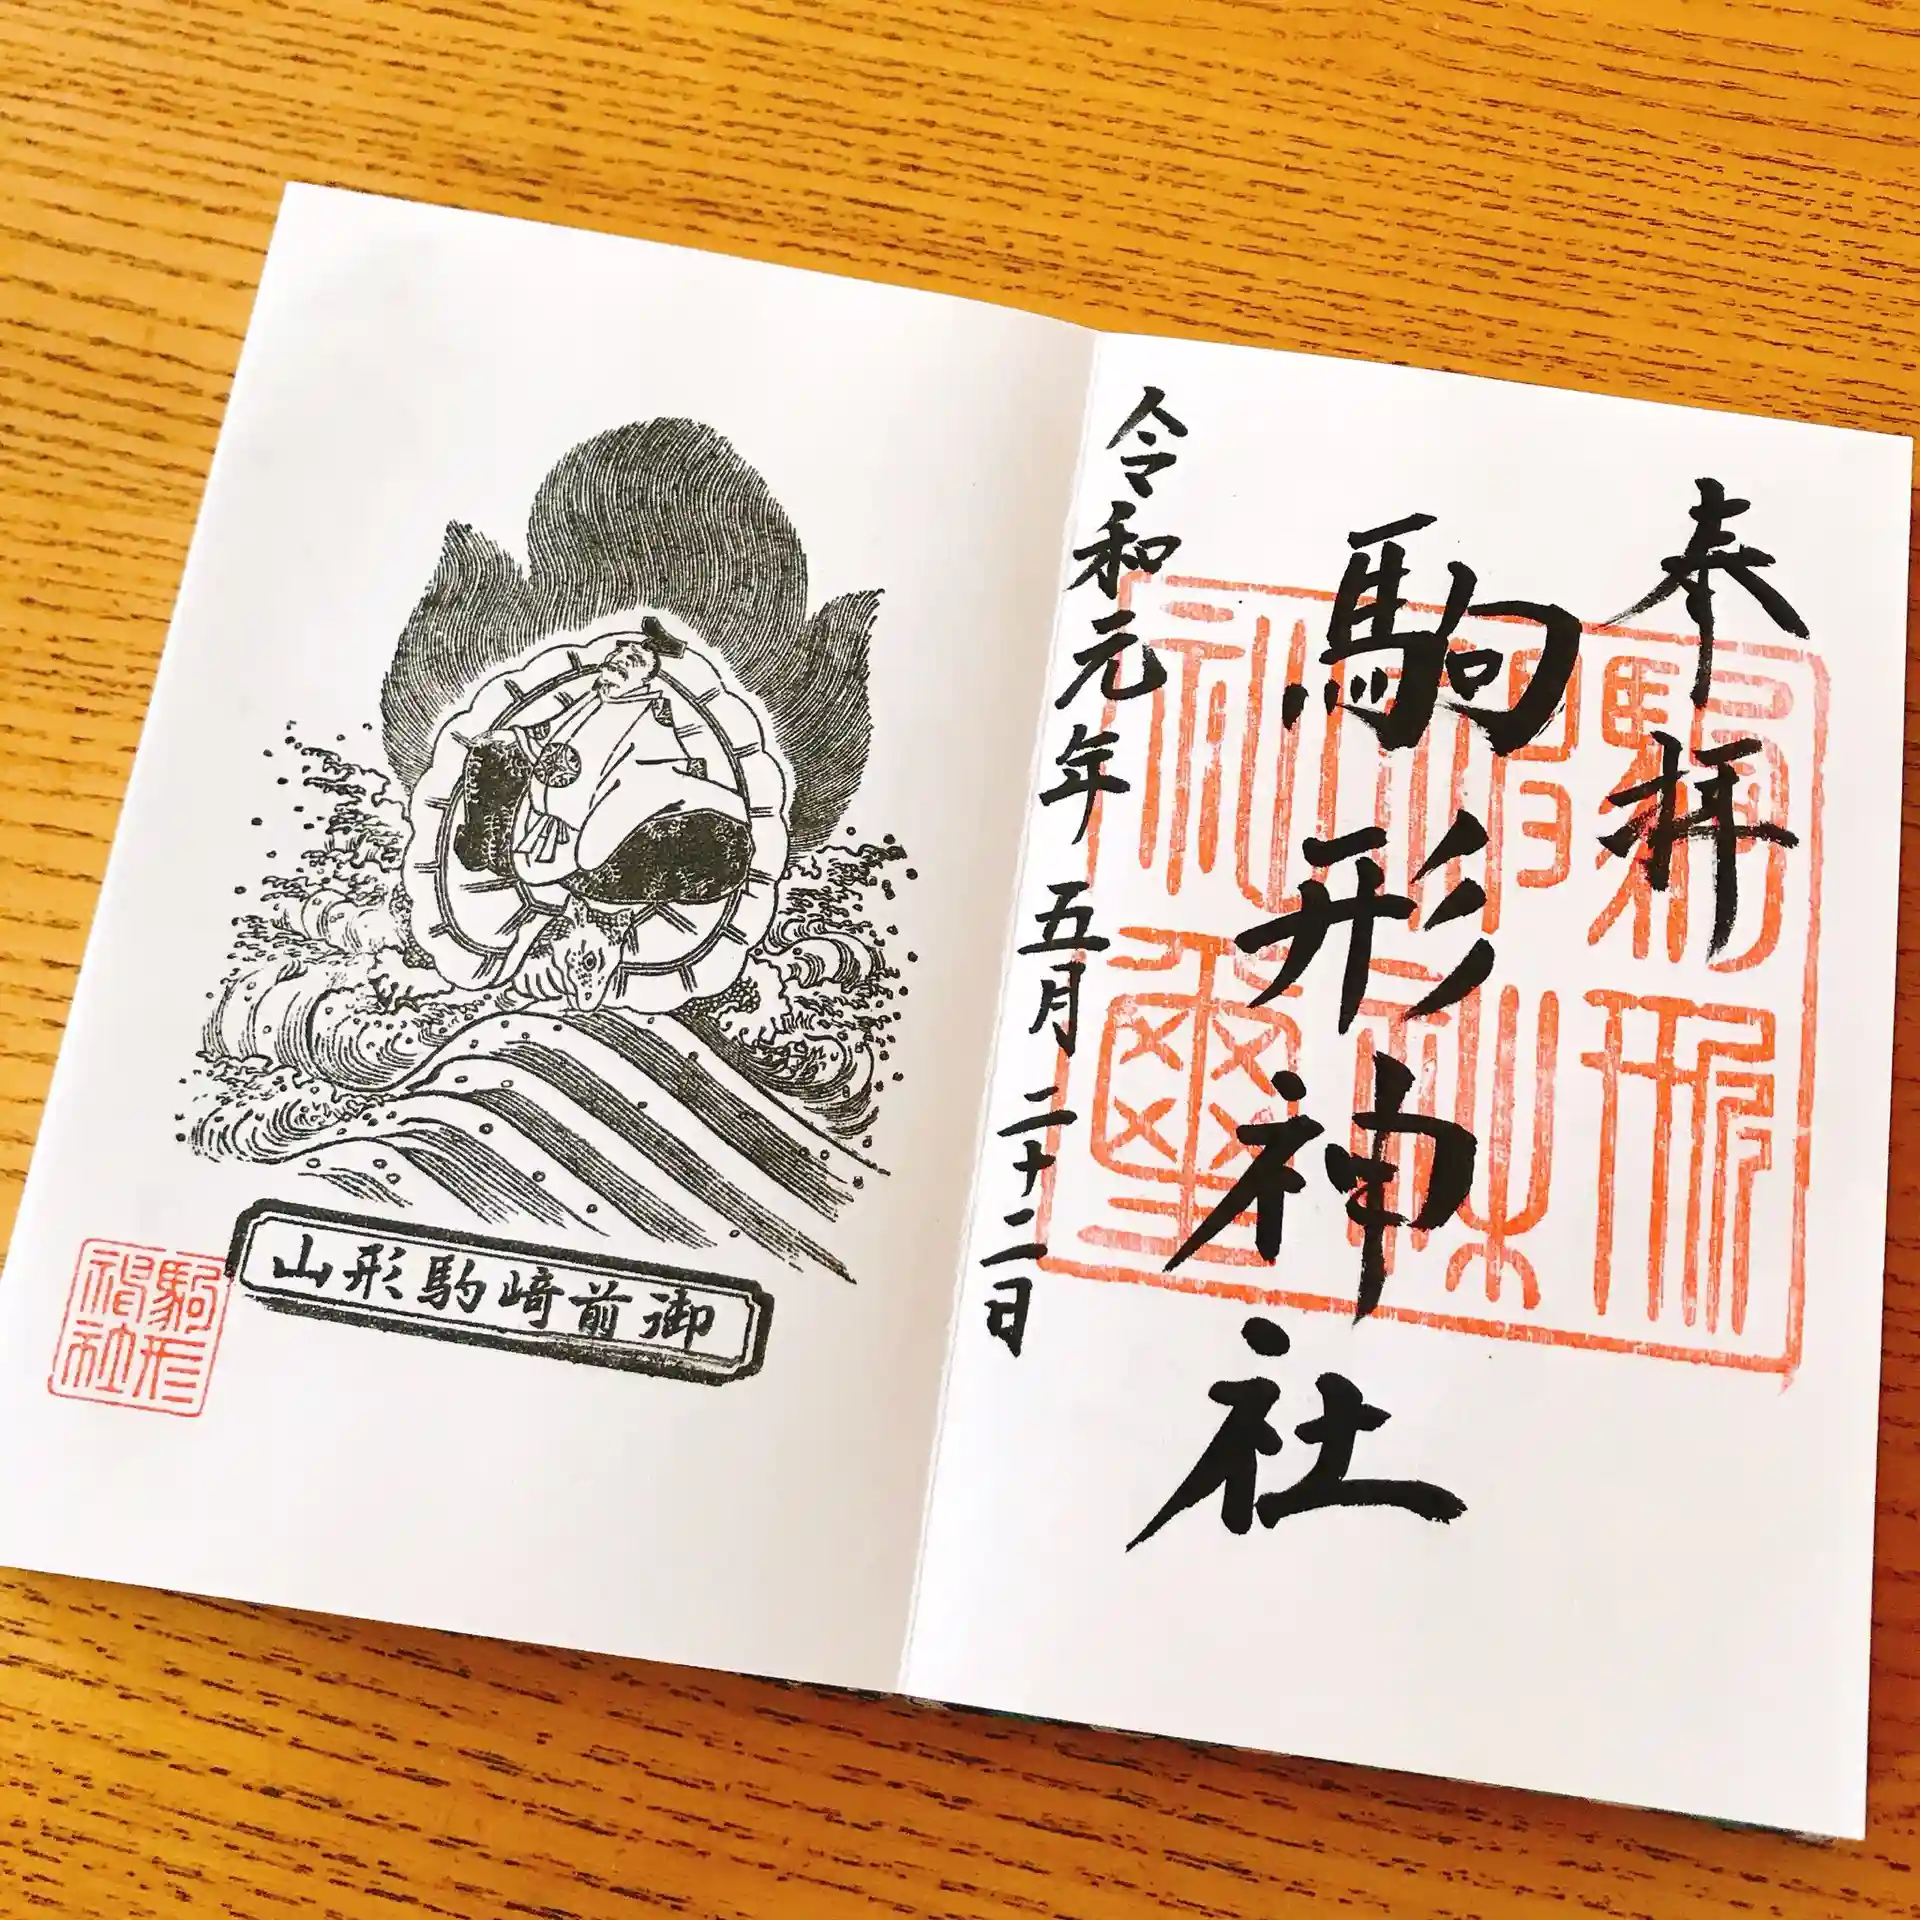 奉拝
駒形神社
令和元年 五月 二十二日
御前崎駒形山
駒形
神社